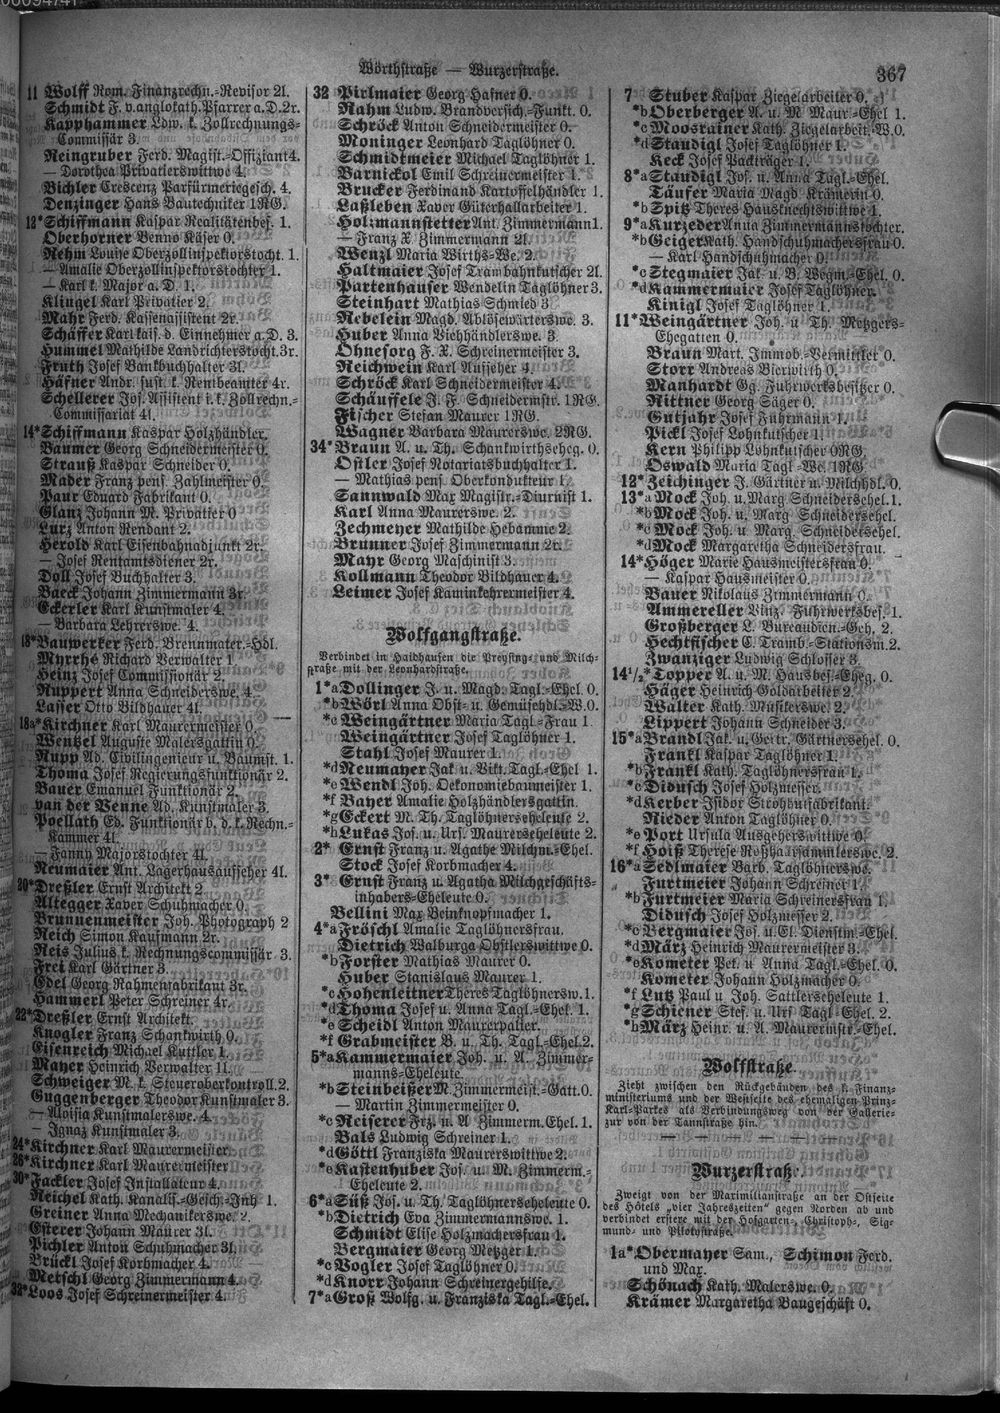 Wörthstraße — Wurzerstraße.
367
11 Wolff Rom. Finanzrechn.-Revisor 2l.
Schmidt F. v. anglokath. Pfarrer a. D. 2r.
Kapphammer Ldw. k. Zollrechnungs-
Commissär 3.
Reingruber Ferd. Magist.-Offiziant 4.
— Dorothea Privatierswittwe 4.
Bichler Crescenz Parfümeriegesch. 4.
Denzinger Hans Bautechniker 1RG.
12* Schiffmann Kaspar Realitätenbes. 1.
Oberhorner Benno Käser 0.
Rehm Louise Oberzollinspektorstocht. 1.
— Amalie Oberzollinspektorstochter 1.
— Karl k. Major a. D. 1.
Klingel Karl Privatier 2.
Mahr Ferd. Kassenassistent 2r.
Schäffer Karl kais. d. Einnehmer a. D. 3.
Hummel Mathilde Landrichterstocht. 3r.
Fruth Josef Bankbuchhalter 3l.
Häfner Andr. fust. k. Rentbeamter 4r.
Schellerer Jos. Assistent i. k. Zollrechn.-
Commissariat 4l.
14* Schiffmann Kaspar Holzhändler.
Bäumer Georg Schneidermeister 0.
Strauß Kaspar Schneider 0.
Mader Franz pens. Zahlmeister 0.
Paur Eduard Fabrikant 0.
Glanz Johann M. Privatier 0
Lurz Anton Rendant 2.
Herold Karl Eisenbahnadjunkt 2r.
— Josef Rentamtsdiener 2r.
Doll Josef Buchhalter 3.
Baeck Johann Zimmermann 3r.
Eckerler Karl Kunstmaler 4.
— Barbara Lehrerswe. 4.
18* Bauwerker Ferd. Brennmater.-Hdl.
Myrrhé Richard Verwalter 1.
Heinz Josef Commissionär 2.
Ruppert Anna Schneiderswe. 4.
Lasser Otto Bildhauer 4l.
18a* Kirchner Karl Maurermeister 0.
Wentzel Auguste Malersgattin 0.
Rupp Ad. Civilingenieur u. Baumst. 1.
Thoma Josef Regierungsfunktionär 2.
Bauer Emanuel Funktionär 2.
van der Venne Ad. Kunstmaler 3.
Poellath Ed. Funktionär b. d. k. Rechn.-
Kammer 4l
— Fanny Majorstochter 4l.
Neumaier Ant. Lagerhausaufseher 4l.
20* Dreßler Ernst Architekt 2
Altegger Xaver Schuhmacher 0.
Brunnenmeister Joh. Photograph 2
Reich Simon Kaufmann 2r.
Reis Julius k. Rechnungscommissär 3.
Frei Karl Gärtner 3.
Edel Georg Rahmenfabrikant 3r.
Hammerl Peter Schreiner 4r.
22* Dreßler Ernst Architekt.
Knogler Franz Schankwirth 0.
Eisenreich Michael Kuttler 1.
Mayer Heinrich Verwalter 1l.
Schweiger M. k. Steueroberkontroll. 2.
Guggenberger Theodor Kunstmaler 3.
— Aloisia Kunstmalerswe. 4.
— Ignaz Kunstmaler 3.
24* Kirchner Karl Maurermeister.
26* Kirchner Karl Maurermeister
30* Fackler Josef Installateur 4.
Reichel Kath. Kanalis.-Gesch.-Inh 1.
Greiner Anna Mechanikerswe. 2.
Esterer Johann Maurer 3l.
Pichler Anton Schuhmacher 3l.
Brückl Josef Korbmacher 4.
Metschl Georg Zimmermann 4.
32* Loos Josef Schreinermeister 4.
32 Pirlmaier Georg Hafner 0.
Rahm Ludw. Brandversich.-Funkt. 0.
Schröck Anton Schneidermeister 0.
Moninger Leonhard Taglöhner 0.
Schmidtmeier Michael Taglöhner 1.
Barnickol Emil Schreinermeister 1.
Brucker Ferdinand Kartoffelhändler 1.
Laßleben Xaver Güterhallarbeiter 1.
Holzmannstetter Ant. Zimmermann 1.
— Franz X. Zimmermann 2l.
Wenzl Maria Wirths-We. 2.
Haltmaier Josef Trambahnkutscher 2l.
Partenhauser Wendelin Taglöhner 3.
Steinhart Mathias Schmied 3
Nebelein Magd. Ablösewärterswe. 3.
Huber Anna Viehhändlerswe. 3.
Ohnesorg F. X. Schreinermeister 3.
Reichwein Karl Aufseher 4.
Schröck Karl Schneidermeister 4.
Schäuffele J. F. Schneidermstr. 1RG.
Fischer Stefan Maurer 1RG.
Wagner Barbara Maurerswe. 2RG.
34* Braun A. u. Th. Schankwirthseheg. 0.
Ostler Josef Notariatsbuchhalter 1.
— Mathias pens. Oberkondukteur 1.
Sannwald Max Magistr.-Diurnist 1.
Karl Anna Maurerswe. 2.
Zechmeyer Mathilde Hebamme 2.
Brunner Josef Zimmermann 2r.
Mayr Georg Maschinist 3.
Kollmann Theodor Bildhauer 4.
Leimer Josef Kaminkehrermeister 4.
Wolfgangstraße.
Verbindet in Haidhausen die Preysing- und Milch-
straße mit der Leonhardstraße.
1*a Dollinger J. u. Magd. Tagl.-Ehel. 0.
*b Wörl Anna Obst- u. Gemüsehdl.-W. 0.
*c Weingärtner Maria Tagl.-Frau 1.
Weingärtner Josef Taglöhner 1.
Stahl Josef Maurer 1.
*d Neumayer Jak u. Vikt. Tagl.-Ehel 1.
*e Wendl Joh. Oekonomiebaumeister 1.
*f Bayer Amalie Holzhändlersgattin.
*g Eckert M. Th. Taglöhnerseheleute 2.
*h Lukas Jos. u. Urs. Maurerseheleute 2.
2* Ernst Franz u. Agathe Milchm.-Ehel.
Stock Josef Korbmacher 4.
3* Ernst Franz u. Agatha Milchgeschäfts-
inhabers-Eheleute 0.
Bellini Max Beinknopfmacher 1.
4*a Fröschl Amalie Taglöhnersfrau.
Dietrich Walburga Obstlerswittwe 0.
*b Forster Mathias Maurer 0.
Huber Stanislaus Maurer 1.
*c Hohenleitner Theres Taglöhnersw. 1.
*d Thoma Josef u. Anna Tagl.-Ehel. 1.
*e Scheidl Anton Maurerpalier.
*f Grabmeister B. u. Th. Tagl.-Ehel. 2.
5*a Kammermaier Joh. u. A. Zimmer-
manns-Eheleute.
*b Steinbeißer M. Zimmermeist.-Gatt. 0.
— Martin Zimmermeister 0.
*c Reiserer Frz. u. A. Zimmerm. Ehel. 1.
Bals Ludwig Schreiner 1.
*d Göttl Franziska Maurerswittwe 2.
*e Kastenhuber Jos. u. M. Zimmerm.-
Eheleute 2.
6*a Süß Jos. u. Th. Taglöhnerseheleute 0
*b Dietrich Eva Zimmermannswe. 1.
Schmidt Elise Holzmachersfrau 1.
Bergmaier Georg Metzger 1.
*c Vogler Josef Taglöhner 0.
*d Knorr Johann Schreinergehilfe.
7*a Groß Wolfg. u. Franziska Tagl.-Ehel.
7 Stuber Kaspar Ziegelarbeiter 0.
*b Oberberger A. u. M. Maur.-Ehel 1.
*c Moosrainer Kath. Ziegelarbeit.-W. 0.
*d Staudigl Josef Taglöhner 1.
Keck Josef Packträger 1.
8*a Staudigl Jos. u. Anna Tagl.-Ehel.
Täufer Maria Magd. Krämerin 0.
*b Spitz Theres Hausknechtswittwe 1.
9*a Kurzeder Anna Zimmermannstochter.
*b Geiger Kath. Handschuhmachersfrau 0.
— Karl Handschuhmacher 0.
*c Stegmaier Jak. u. B. Wegm.-Ehel. 0.
*d Kammermaier Josef Taglöhner.
Kinigl Josef Taglöhner 1.
11* Weingärtner Joh. u. Th. Metzgers-
Ehegatten 0.
Braun Mart. Immob.-Vermittler 0.
Storr Andreas Bierwirth 0.
Manhardt Gg. Fuhrwerksbesitzer 0.
Rittner Georg Säger 0.
Gutjahr Josef Fuhrmann 1.
Pickl Josef Lohnkutscher 1.
Kern Philipp Lohnkutscher 0RG.
Oswald Maria Tagl.-We. 1RG.
12* Zeichinger J. Gärtner u. Milchhdl. 0.
13*a Mock Joh. u. Marg. Schneidersehel. 1.
*b Mock Joh. u. Marg. Schneidersehel.
*c Mock Joh. u. Marg. Schneidersehel.
*d Mock Margaretha Schneidersfrau.
14* Höger Marie Hausmeistersfrau 0.
— Kaspar Hausmeister 0.
Bauer Nikolaus Zimmermann 0.
Ammereller Vinz. Fuhrwerksbes. 1.
Großberger L. Bureaudien.-Geh. 2.
Hechtfischer C. Tramb.-Stationsm. 2.
Zwanziger Ludwig Schlosser 3.
14½* Topper A. u. M. Hausbes.-Eheg. 0.
Häger Heinrich Goldarbeiter 2.
Walter Kath. Musikerswe. 2.
Lippert Johann Schneider 3.
15*a Brandl Jak. u. Gertr. Gärtnersehel. 0.
Frankl Kaspar Taglöhner 1.
*b Frankl Kath. Taglöhnersfrau 1.
*c Didusch Josef Holzmesser.
*d Kerber Isidor Strohhutfabrikant.
Rieder Anton Taglöhner 0.
*e Port Ursula Ausgeherswittwe 0.
*f Hoiß Therese Roßhaarsammlerswe. 2.
16*a Sedlmaier Barb. Taglöhnerswe.
Furtmeier Johann Schreiner 1.
*b Furtmeier Maria Schreinersfrau 1.
Didusch Josef Holzmesser 2.
*c Bergmaier Jos. u. El. Dienstm.-Ehel.
*d März Heinrich Maurermeister 3.
*e Kometer Pet. u. Anna Tagl.-Ehel. 0.
Kometer Johann Holzmacher 0.
*f Lutz Paul u. Joh. Sattlerseheleute 1.
*g Schiener Stef. u. Urs. Tagl.-Ehel. 2.
*h März Heinr. u. A. Maurermstr.-Ehel.
Wolfstraße.
Zieht zwischen den Rückgebäuden des k. Finanz-
ministeriums und der Westseite des ehemaligen Prinz-
Karl-Parkes als Verbindungsweg von der Gallerie-
zur von der Tannstraße hin.
Wurzerstraße.
Zweigt von der Maximilianstraße an der Ostseite
des Hôtels „vier Jahreszeiten" gegen Norden ab und
verbindet erstere mit der Hofgarten-, Christoph-, Sig-
mund- und Pilotystraße.
1a* Obermayer Sam., Schimon Ferd.
und Max.
Schönach Kath. Malerswe. 0.
Krämer Margaretha Baugeschäft 0.